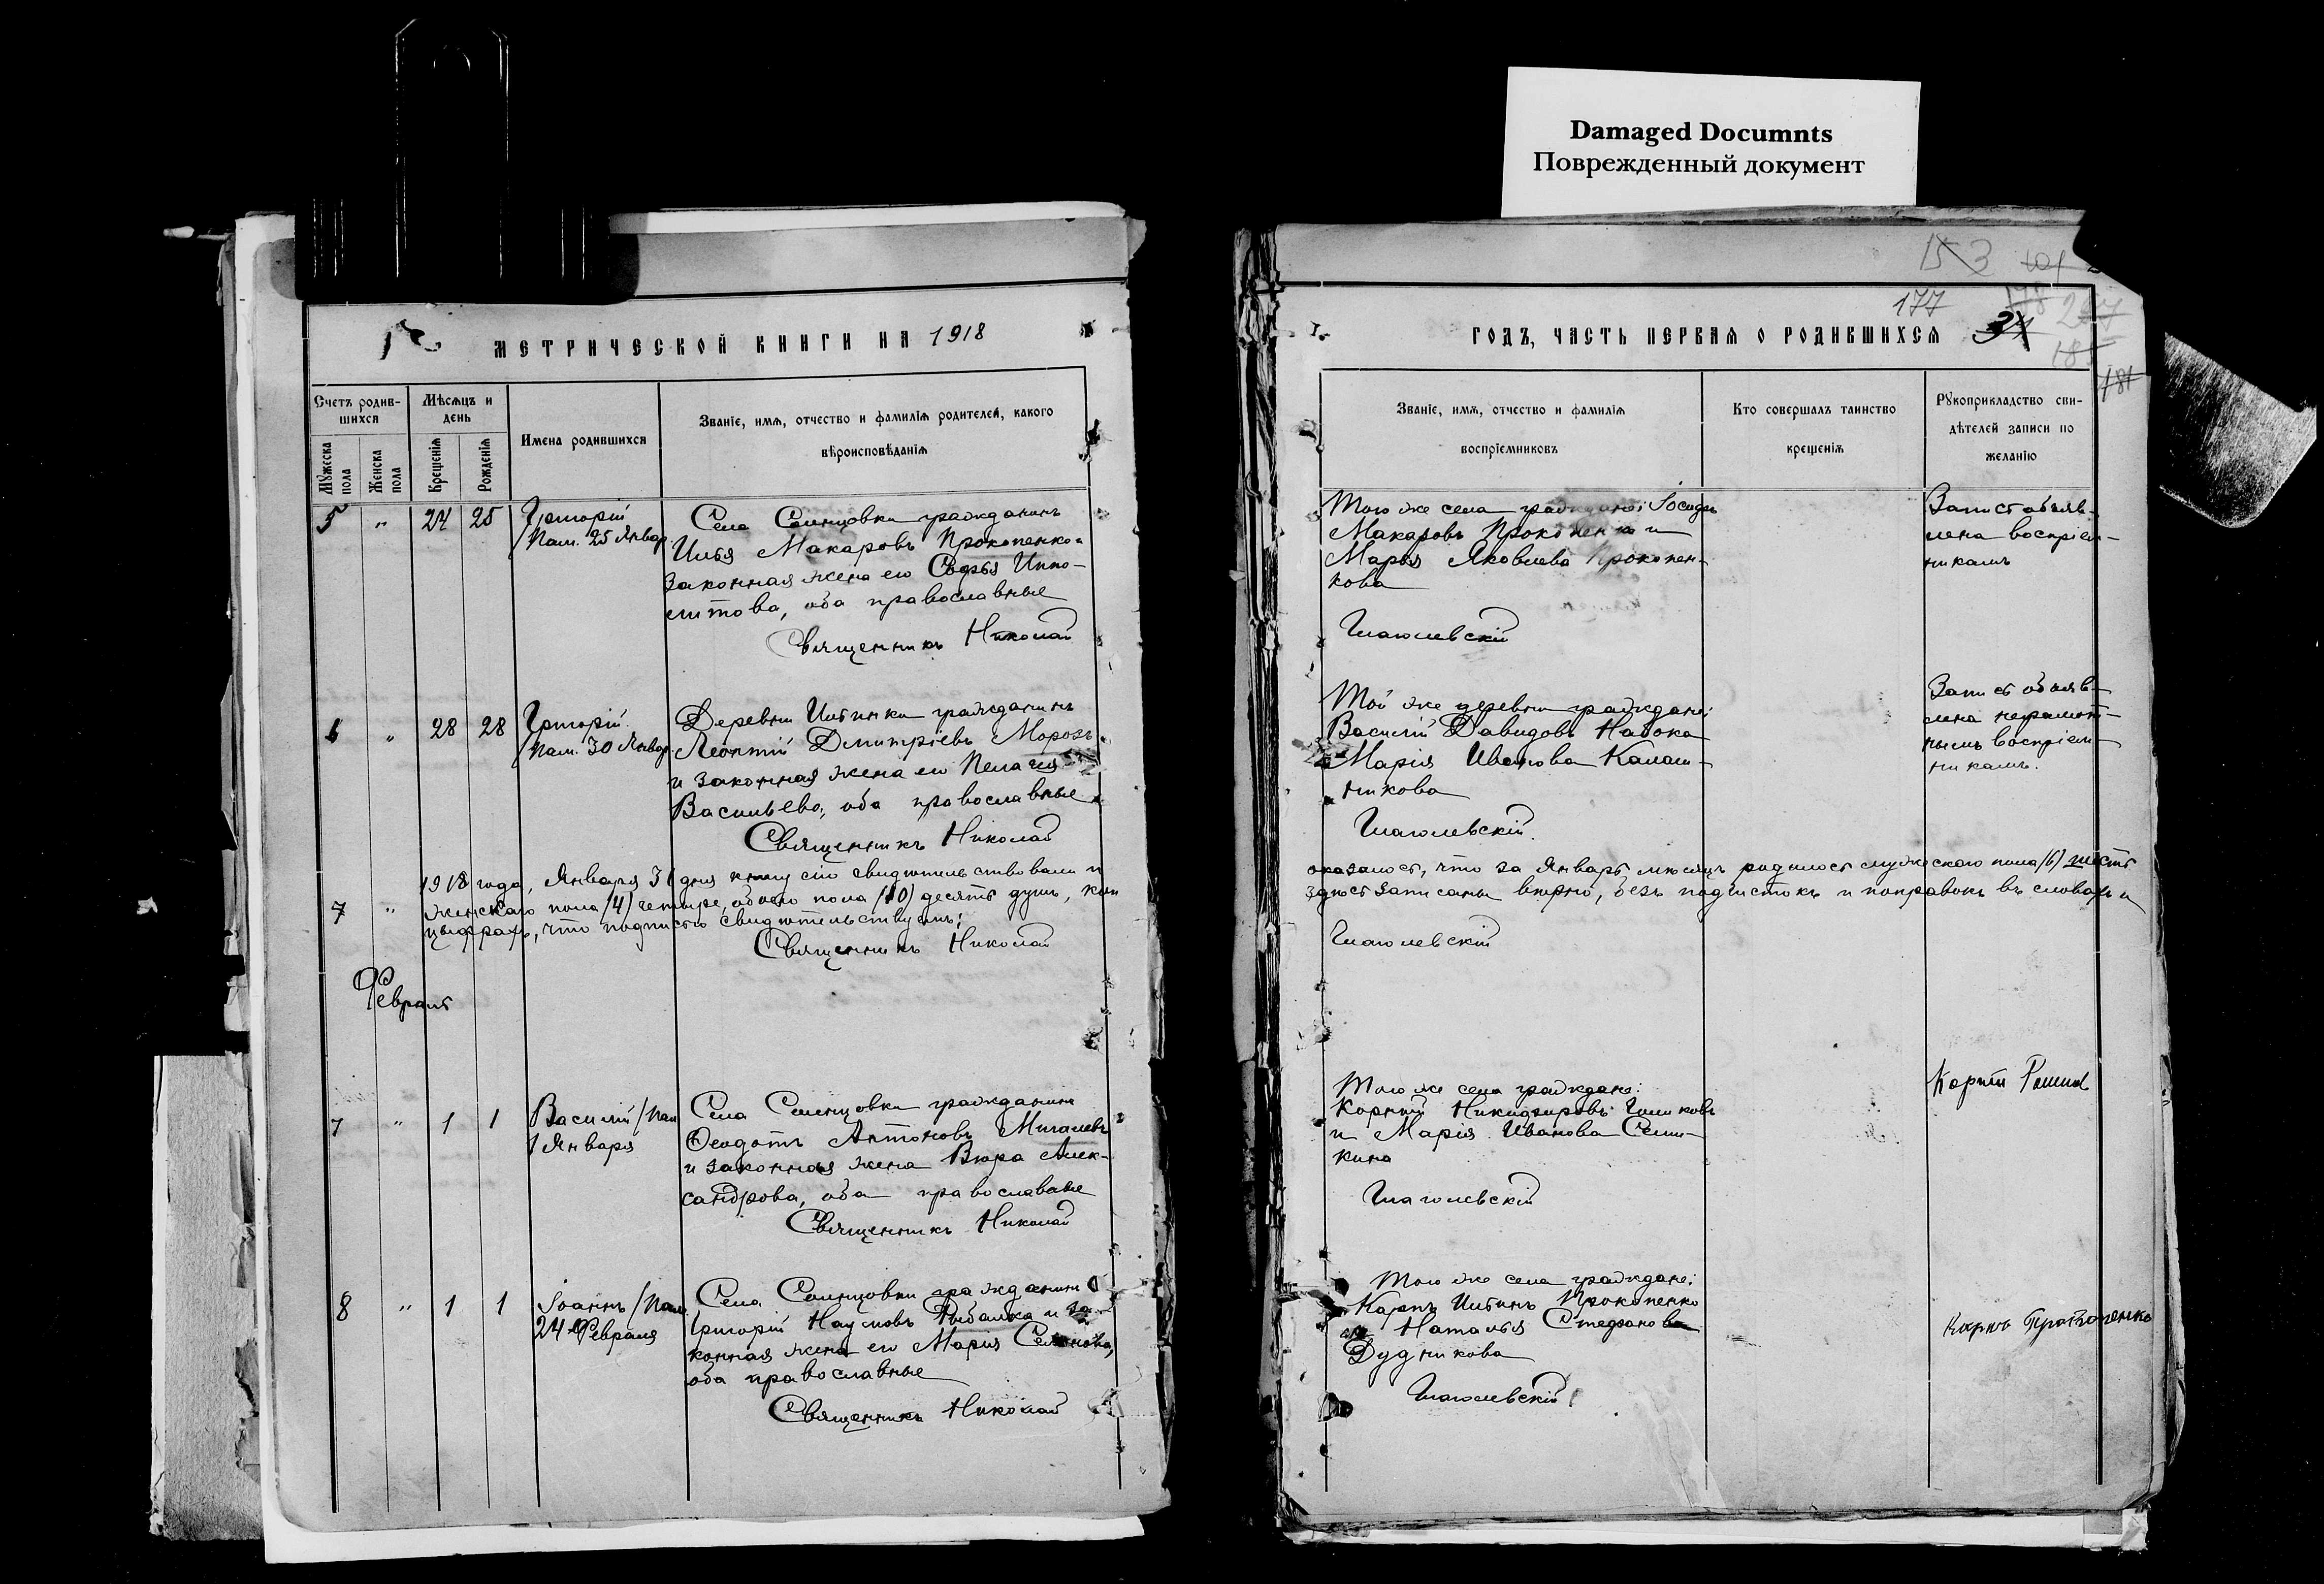 Damaged Documnts
Поврежденный документ
МЕТРИЧЕСКОЙ КНИГИ НА 1918
Счетъ родив-
шихся
Мѣсяцъ и
день
Имена родившихся
Званіе, имя, отчество и фамилія родителей, какого
вѣроисповѣданія
Мужеска
пола
Женска
пола
Крещенія
Рожденія
5 " 24 25 Григорій
/Пам. 25 Январ.
Села Солнцовки гражданинъ
Илья Макаровъ Прокопенко и
законная жена его Софья Иппо-
литова, оба православные
Священникъ Николай
6 " 28 28 Григорій
/Пам. 30 Январ.
Деревни Ильинки гражданинъ
Леонтій Дмитріевъ Морозъ
и законная жена его Пелагия
Васильева, оба православные
Священникъ Николай
1918 года, Января 31 дня книгу сію свидѣтельствовали и
7 " женскаго пола (4) четыре, обоего пола (10) десять душъ, кои
цыфрахъ, что подписью свидѣтельствуемъ:
Священникъ Николай
Февраль
7 " 1 1 Василій /Пам
1 Января
Села Солнцовки гражданинъ
Феодотъ Антоновъ Мигалевъ
и законная жена Вѣра Алек-
сандрова, оба православные
Священникъ Николай
8 " 1 1 Іоаннъ /Пам.
24 Февраля
Села Солнцовки гражданинъ
Григорій Наумовъ Рыбалка и за-
конная жена его Марія Семенова,
оба православные
Священникъ Николай
153
177
ГОДЪ, ЧАСТЬ ПЕРВАЯ О РОДИВШИХСЯ
181
Званіе, имя, отчество и фамилія
воспріемниковъ
Кто совершалъ таинство
крещенія
Рукоприкладство сви-
дѣтелей записи по
желанію
Того же села граждане: Іосифъ
Макаровъ Прокопенко и
Марья Яковлева Прокопен-
кова
Глаголевскій
Запись объяв-
лена воспріем-
никамъ
Той же деревни граждане:
Василій Давидовъ Набока
Марія Иванова Калаш-
никова
Глаголевскій
Запись объяв-
лена неграмот-
нымъ воспріем-
никамъ.
оказалось, что за Январь мѣсяцъ родилось мужескаго пола (6) шесть
здѣсь записаны вѣрно, безъ подчистокъ и поправокъ въ словахъ и
Глаголевскій
Того же села граждане:
Корній Никифоровъ Голиковъ
и Марія Иванова Семи-
кина
Глаголевскій
Корній
Того же села граждане:
Карпъ Ильинъ Прокопенко
и Наталья Стефанова
Дудникова
Глаголевскій
Карпъ